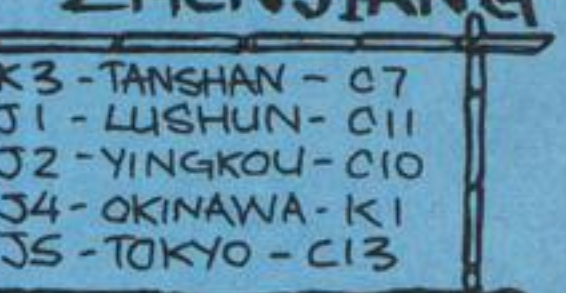 ZHENJIANG
K3 - TANSHAN - C7
J1 - LUSHUN - C11
J2 - YINGKOU - C10
J4 - OKINAWA - K1
J5 - TOKYO - C13